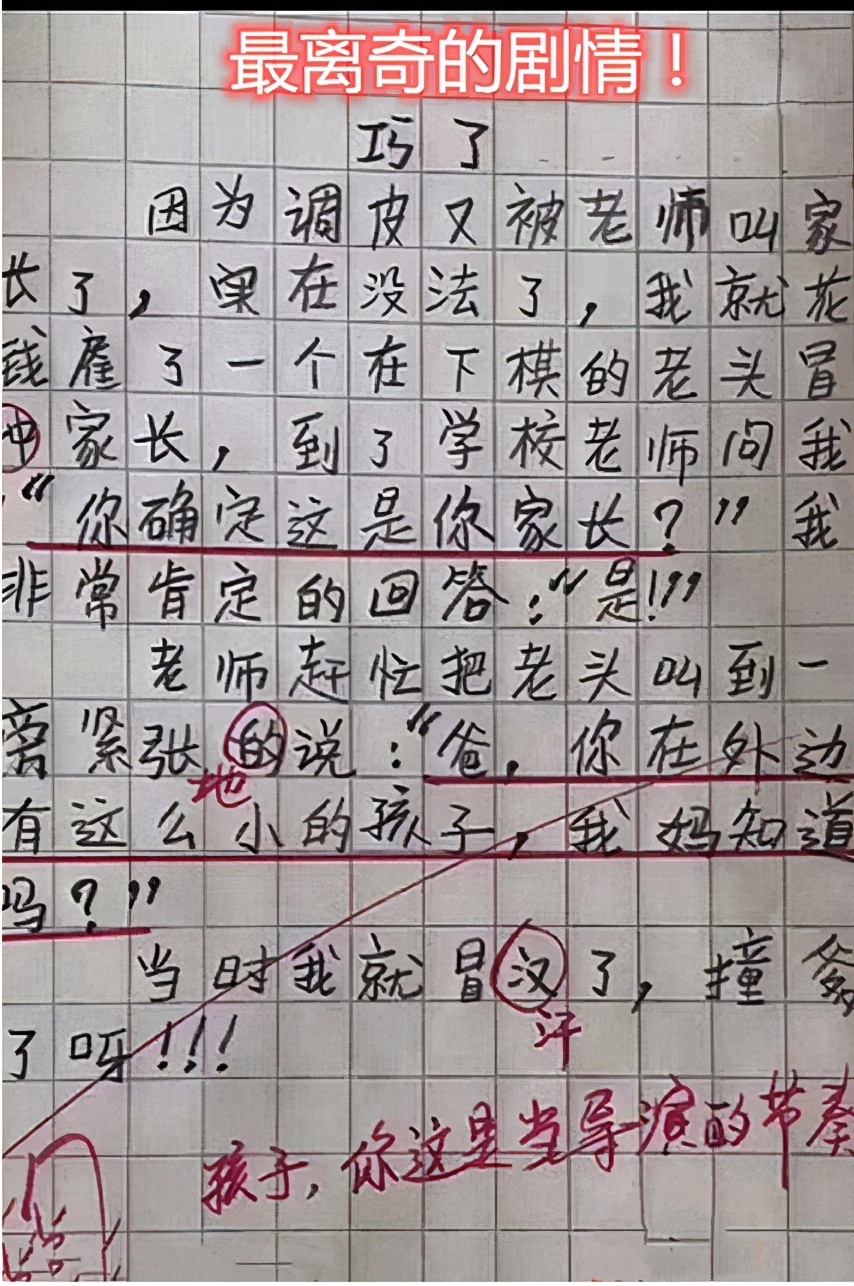 最离奇的剧情！
巧了
因为调皮又被老师叫家
长了，实在没法了，我就花
钱雇了一个在下棋的老头冒
冲家长，到了学校老师问我
“你确定这是你家长？”我
非常肯定的回答：“是！”
老师赶忙把老头叫到一
旁紧张的说：“爸，你在外边
地
有这么小的孩子，我妈知道
吗？”
当时我就冒汉了，撞爹
汗
了呀！！！
孩子，你这是当导演的节奏